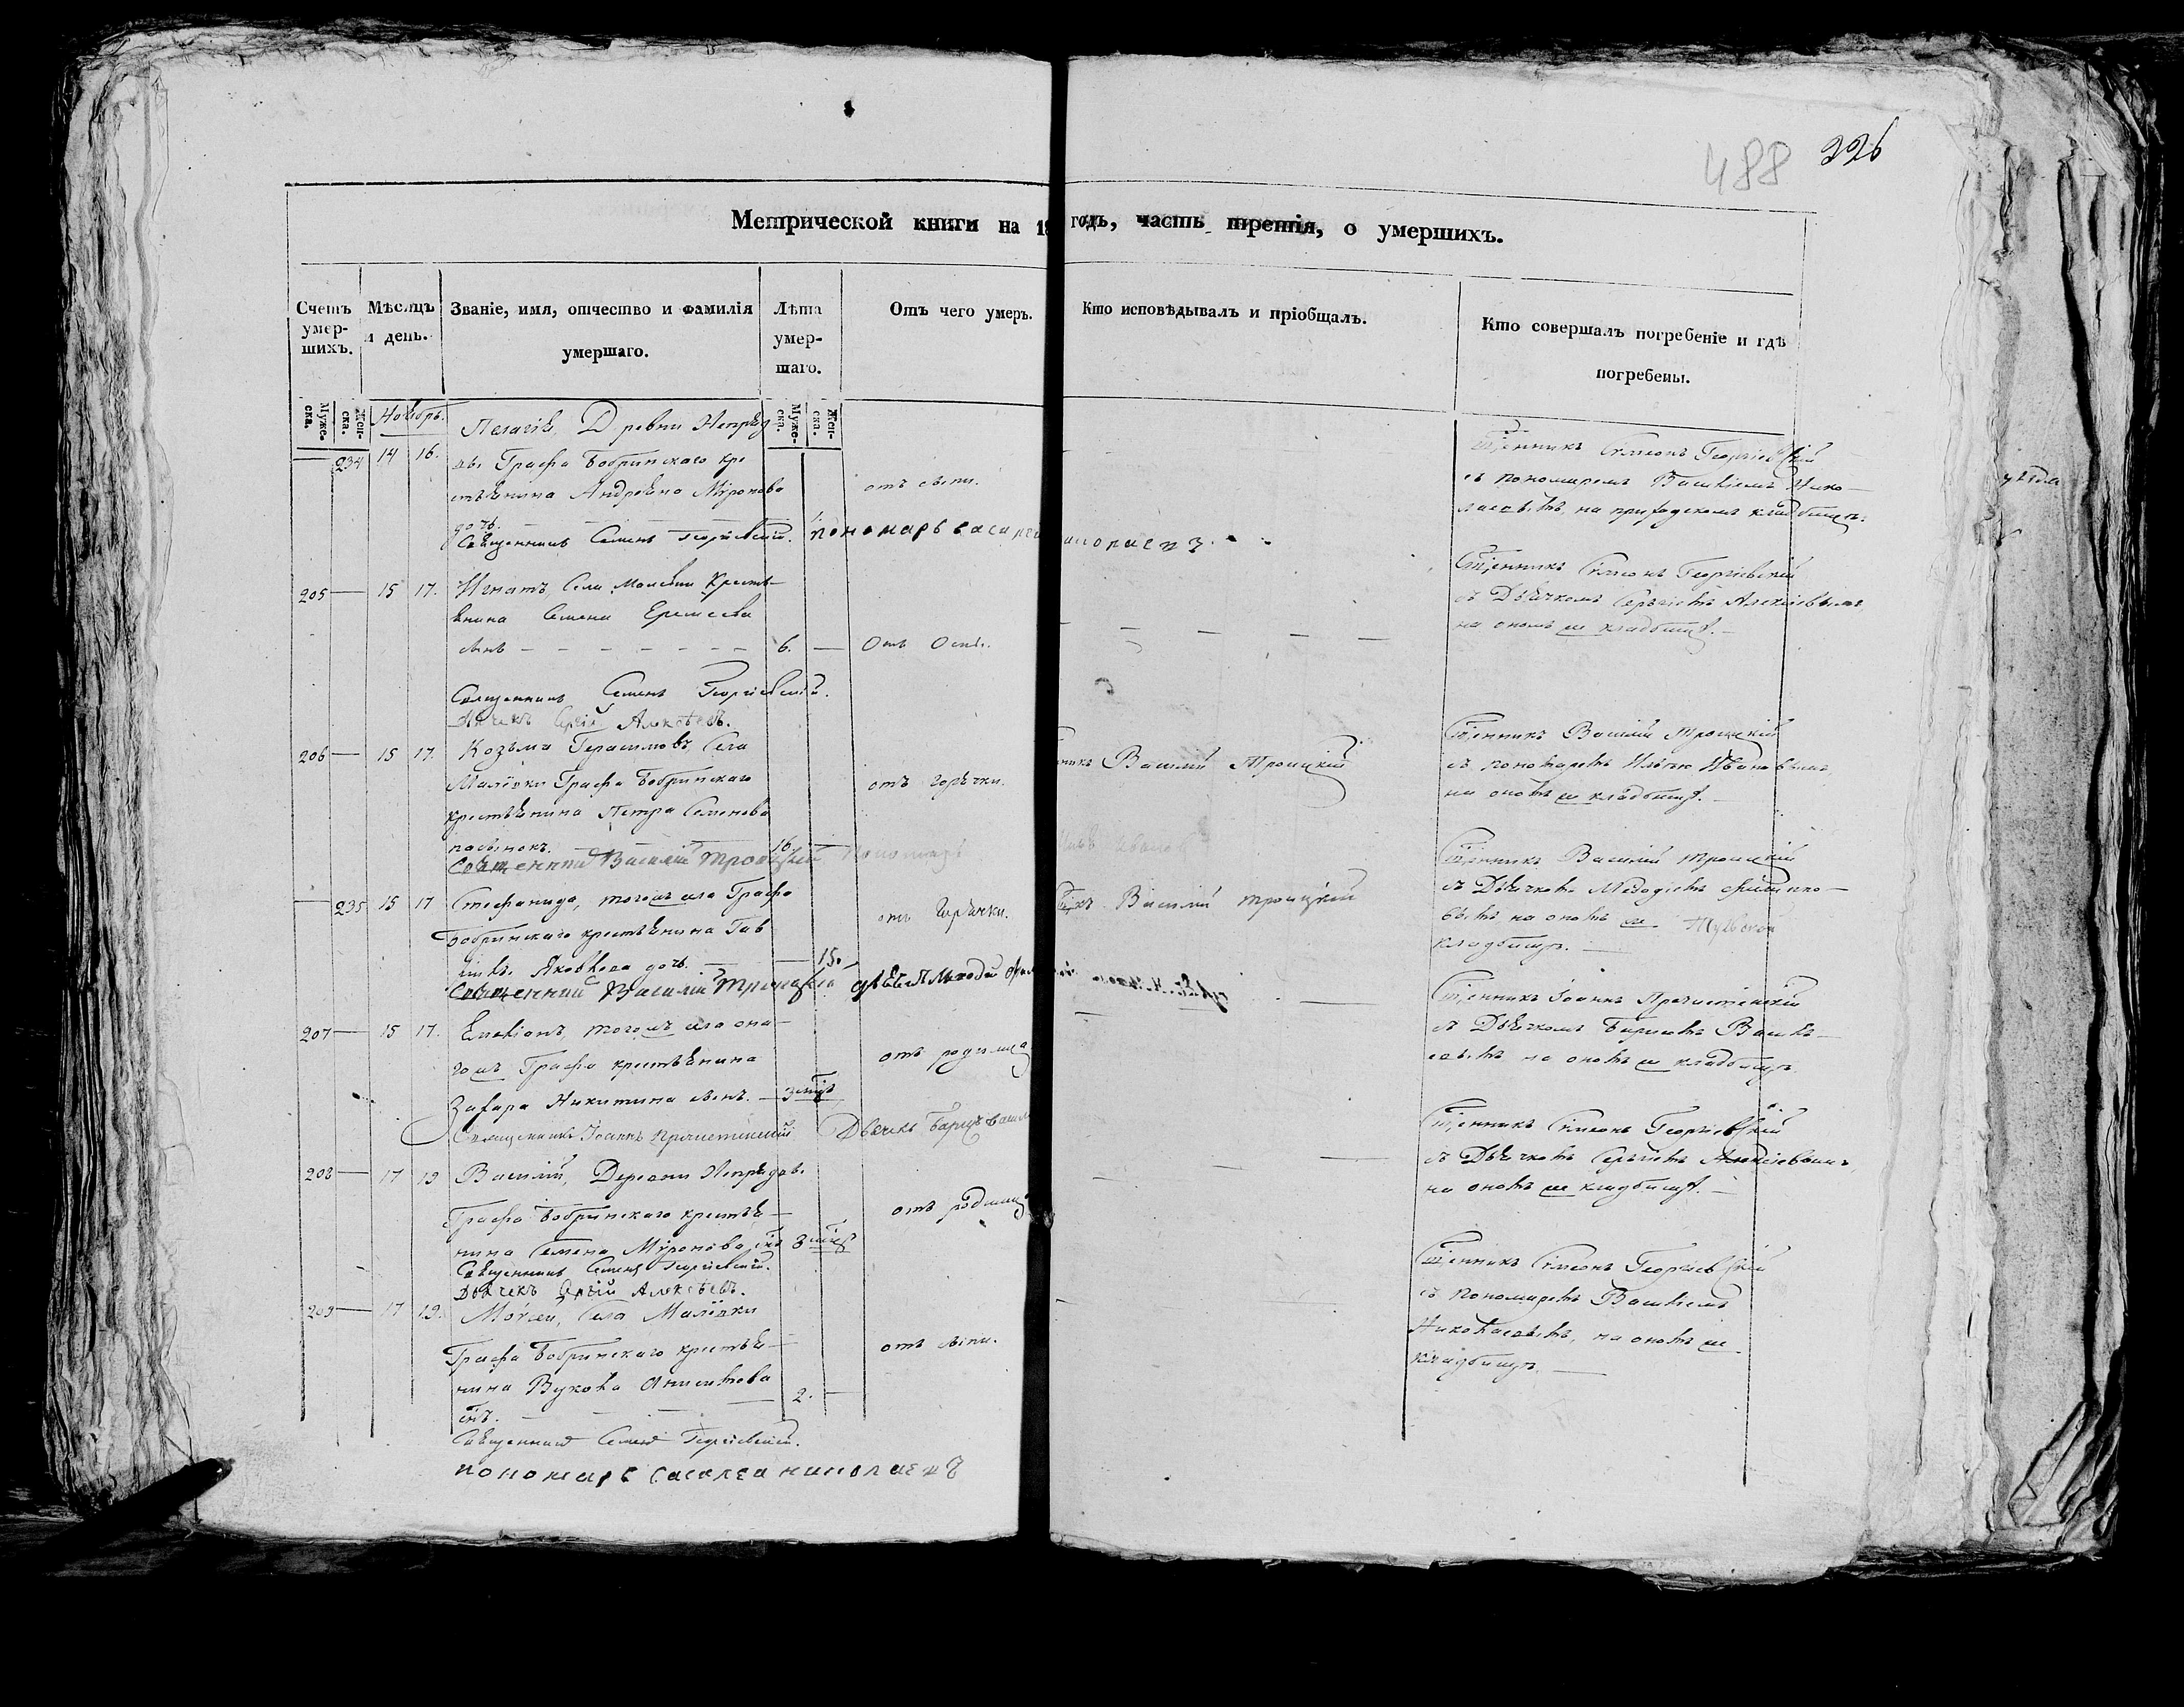 488 226
Метрической книги на 18 годъ, часть третія, о умершихъ.
Счетъ умер-шихъ.
Мѣсяцъ и день.
Званіе, имя, отчество и фамилія умершаго.
Лѣта умер-шаго.
Отъ чего умеръ.
Кто исповѣдывалъ и пріобщалъ.
Кто совершалъ погребеніе и гдѣ погребены.
Муже-ска.
Жен-ска.
Муже-ска.
Жен-ска.
Ноябрь.
234 14 16.
Пелагія, Д ревни Непряд
вы Графа Бобринскаго кре
стьянина Андреяна Миронова
дочь.
Священникъ Семенъ Георгіевскій. пономарь василей николаевъ
Священникъ Симеонъ Георгіевскій
съ пономаремъ Василіемъ Нико
лаевымъ, на приходскомъ кладбищѣ.
205 15 17.
Игнатъ, Села Малевки Кресть
янина Семена Еремеева
сынъ 6. Отъ Оспы.
Священникъ Семенъ Георгіевскій.
Дьячекъ Сергій Алексѣевъ.
Священникъ Симеонъ Георгіевскій
съ Дьячкомъ Сергіемъ Алексіевымъ,
на ономъ же кладбищѣ.
206 15 17.
Козьма Герасимовъ, Села
Малёвки Графа Бобринскаго
крестьянина Петра Семенова
пасынокъ. 16.
отъ горячки.
никъ Василій Троицкій
Священникъ Василій Троицкій Пономарь Илья Ивановъ
Священникъ Василій Троицкій
съ пономаремъ Ильею Ивановымъ,
на ономъ же кладбищѣ.
235 15 17
Стефанида, тогожъ села Графа
Бобринскаго крестьянина Гав
Яковлева дочь. 15.
отъ Горячки.
Василій троицкій
Священникъ Василій Троицкій дьячекъ Мегодій
Священникъ Василій троицкій
съ Дьячкомъ Меѳодіемъ Филиппо
вымъ на ономъ же
кладбищѣ.
207 15 17.
Емеліанъ, тогожъ села она
гожъ Графа крестьянина
Захара Никитина сынъ. 3 мцъ
отъ родимца
Священникъ Іоаннъ Пречистенскій Дьячекъ Борисъ Васил
Священникъ Іоаннъ Пречистенскій
съ Дьячкомъ Борисомъ Василь
евымъ на ономъ же кладбищѣ.
208 17 19
Василій, Деревни Непрядвы
Графа Бобринскаго крестья
нина Семена Миронова снъ 3 мцъ
отъ родимца
Священникъ Семенъ Георгіевскій.
Дьячекъ Сергій Алексѣевъ.
Священникъ Симеонъ Георгіевскій
съ Дьячкомъ Сергіемъ Алексіевымъ,
на ономъ же кладбищѣ.
209 17 19.
Моѵсей, Села Малёвки
Графа Бобринскаго крестья
нина Вукола Анисимова
снъ. 2.
отъ сыпи.
Священникъ Семенъ Георгіевскій.
пономарь василеи николаевъ
Священникъ Симеонъ Георгіевскій
съ пономаремъ Василіемъ
Николаевымъ, на ономъ же
кладбищѣ.